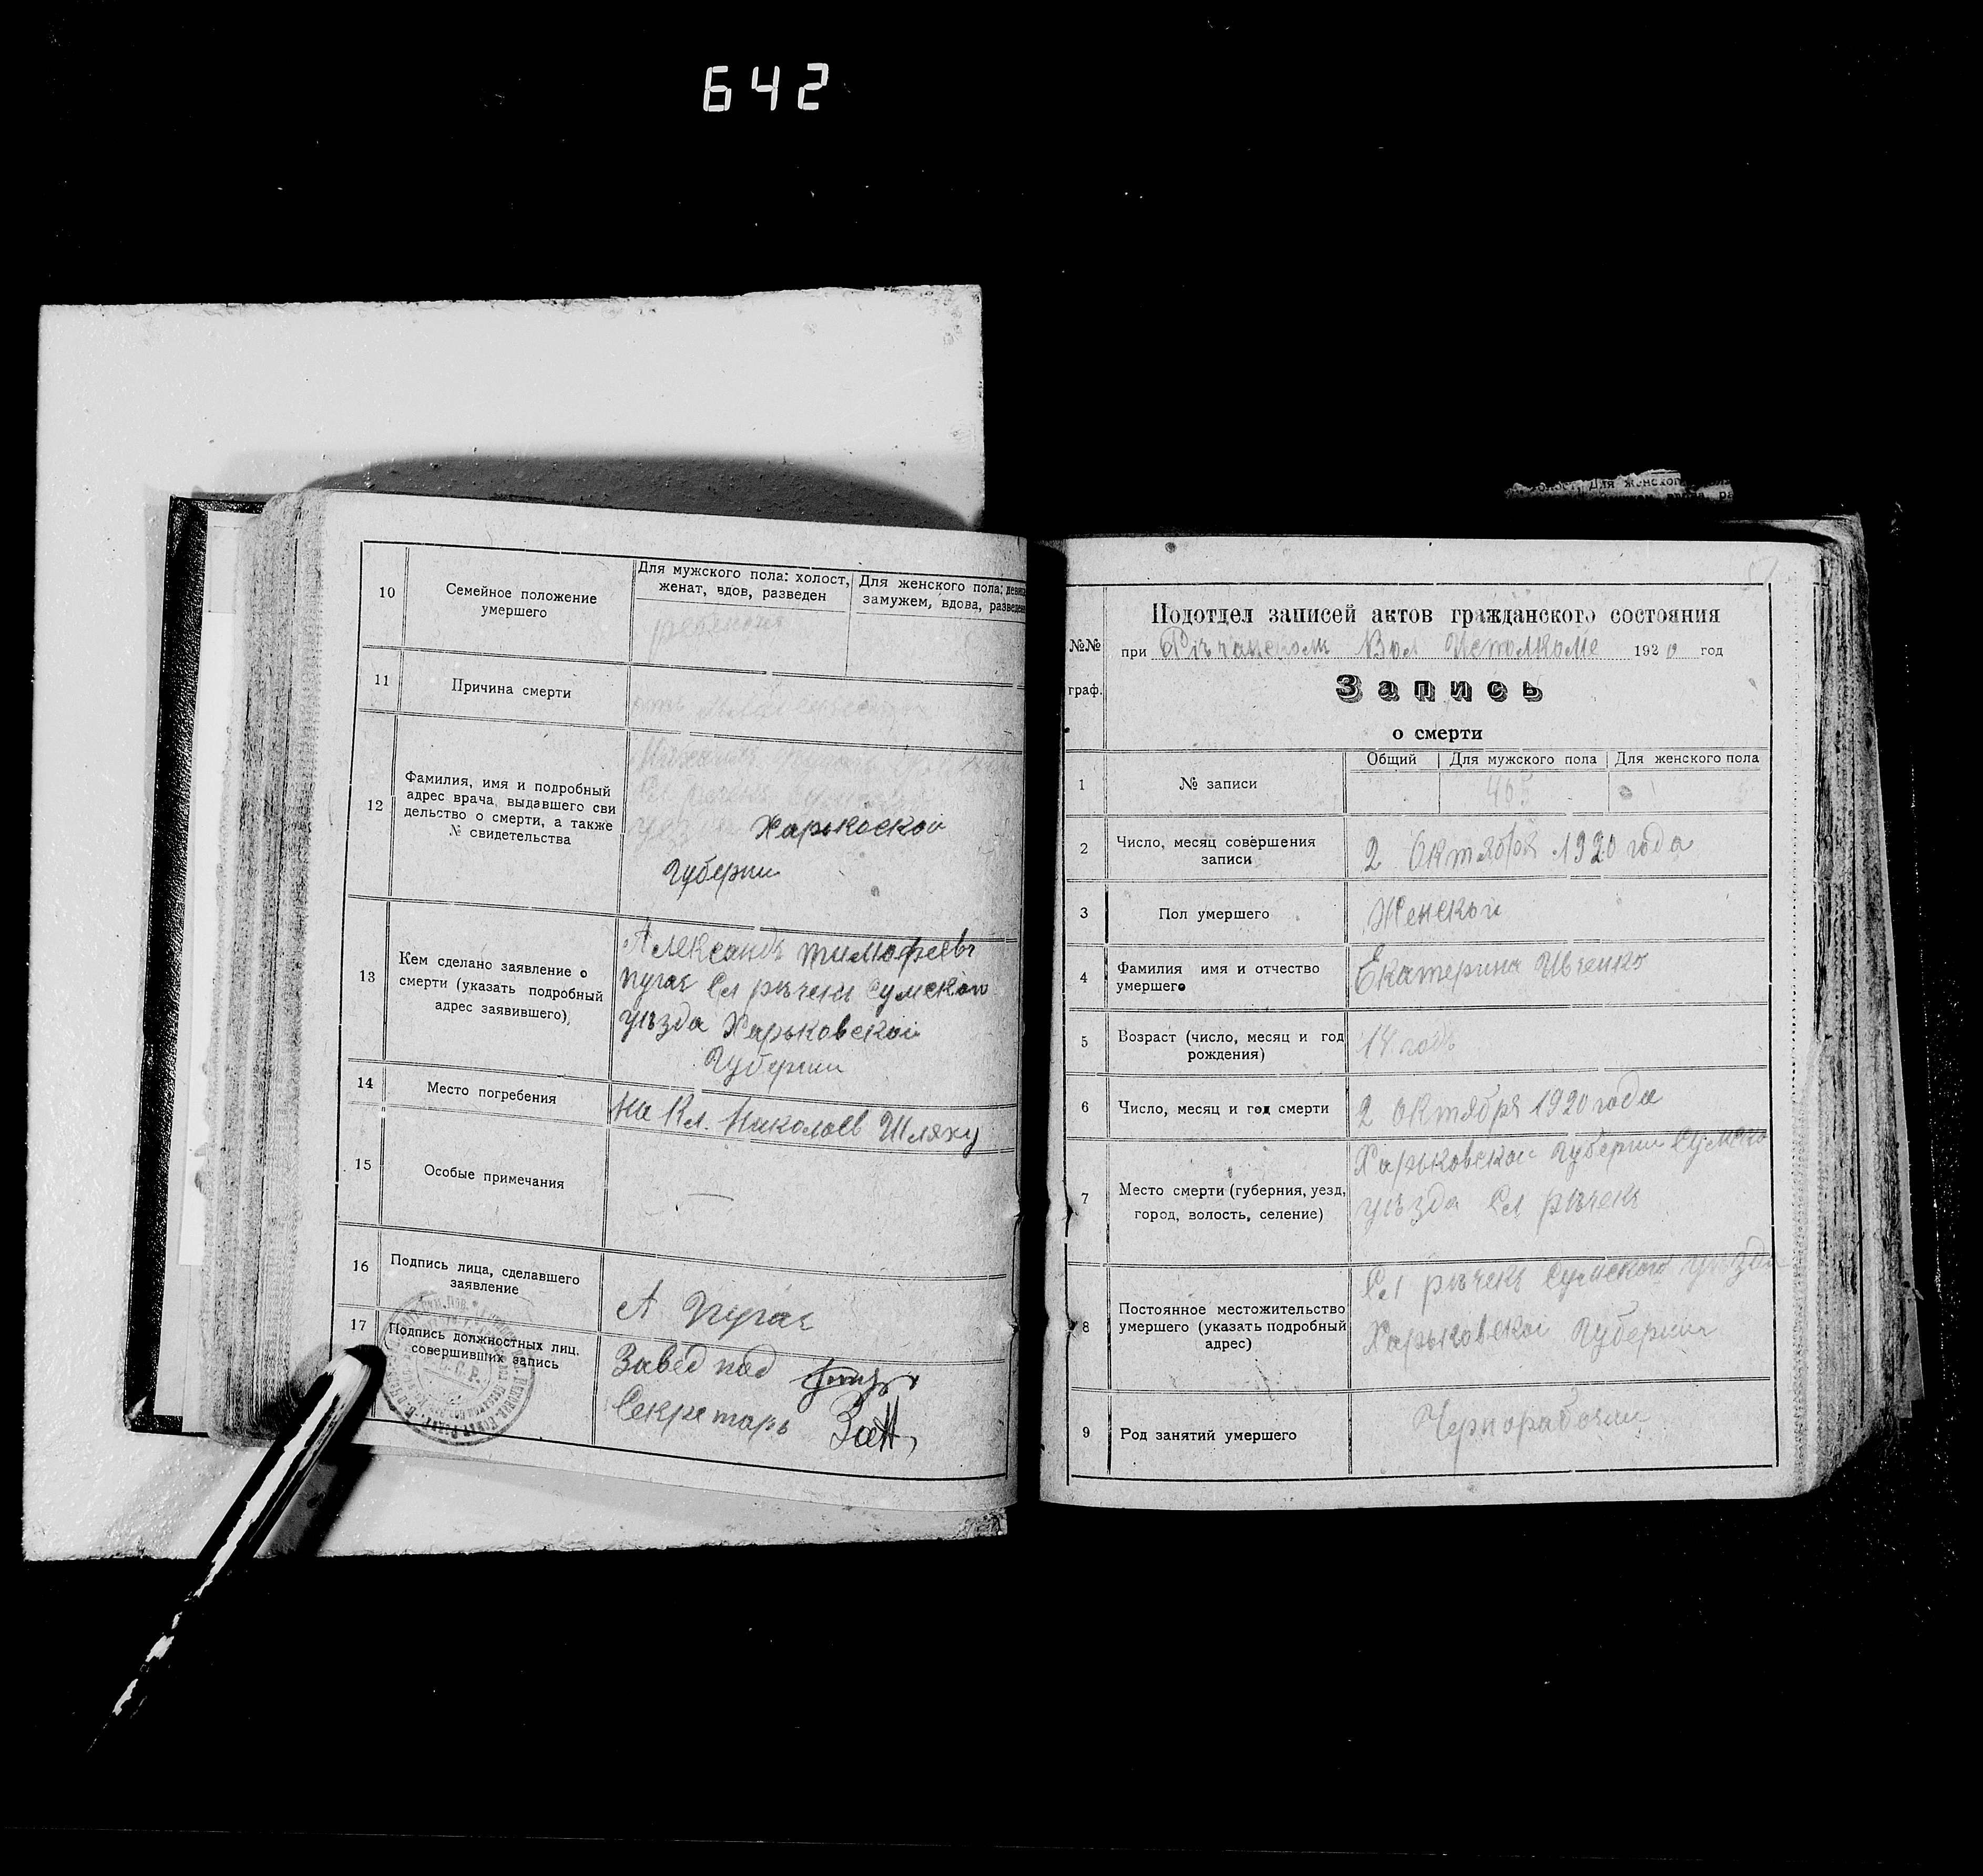 642
Для женского
10
Семейное положение
умершего
Для мужского пола: холост,
женат, вдов, разведен
Для женского пола:
замужем, вдова,
11
Причина смерти
12
Фамилия, имя и подробный
адрес врача, выдавшего сви
дельство о смерти, а также
№ свидетельства
Харькоской
Губернии
13
Кем сделано заявление о
смерти (указать подробный
адрес заявившего)
Александъ Тимофеевъ
Пугач Сл рѣчекъ Сумскои
уѣзда Харьковской
Губернии
14
Место погребения
На Кл. Николаев Шляху
15
Особые примечания
—
16
Подпись лица, сделавшего
заявление
А Пугач
17
Подпись должностных лиц,
совершивших запись
Завед под
Секретарь
№№
граф.
Подотдел записей актов гражданского состояния
при Вол Исполкоме 1920 год
Запись
о смерти
1
№ записи
Общий
Для мужского пола
Для женского пола
465
2
Число, месяц совершения
записи
2 Октября 1920 года
3
Пол умершего
Женскый
4
Фамилия имя и отчество
умершего
Екатерина Ивченко
5
Возраст (число, месяц и год
рождения)
14 годъ
6
Число, месяц и год смерти
2 октября 1920 года
7
Место смерти (губерния, уезд,
город, волость, селение)
Харьковской Губернии Сумско
уѣзда Сл рѣчекъ
8
Постоянное местожительство
умершего (указать подробный
адрес)
Сл рѣчекъ Сумского уѣзда
Харьковской Губернии
9
Род занятий умершего
Чернорабочии